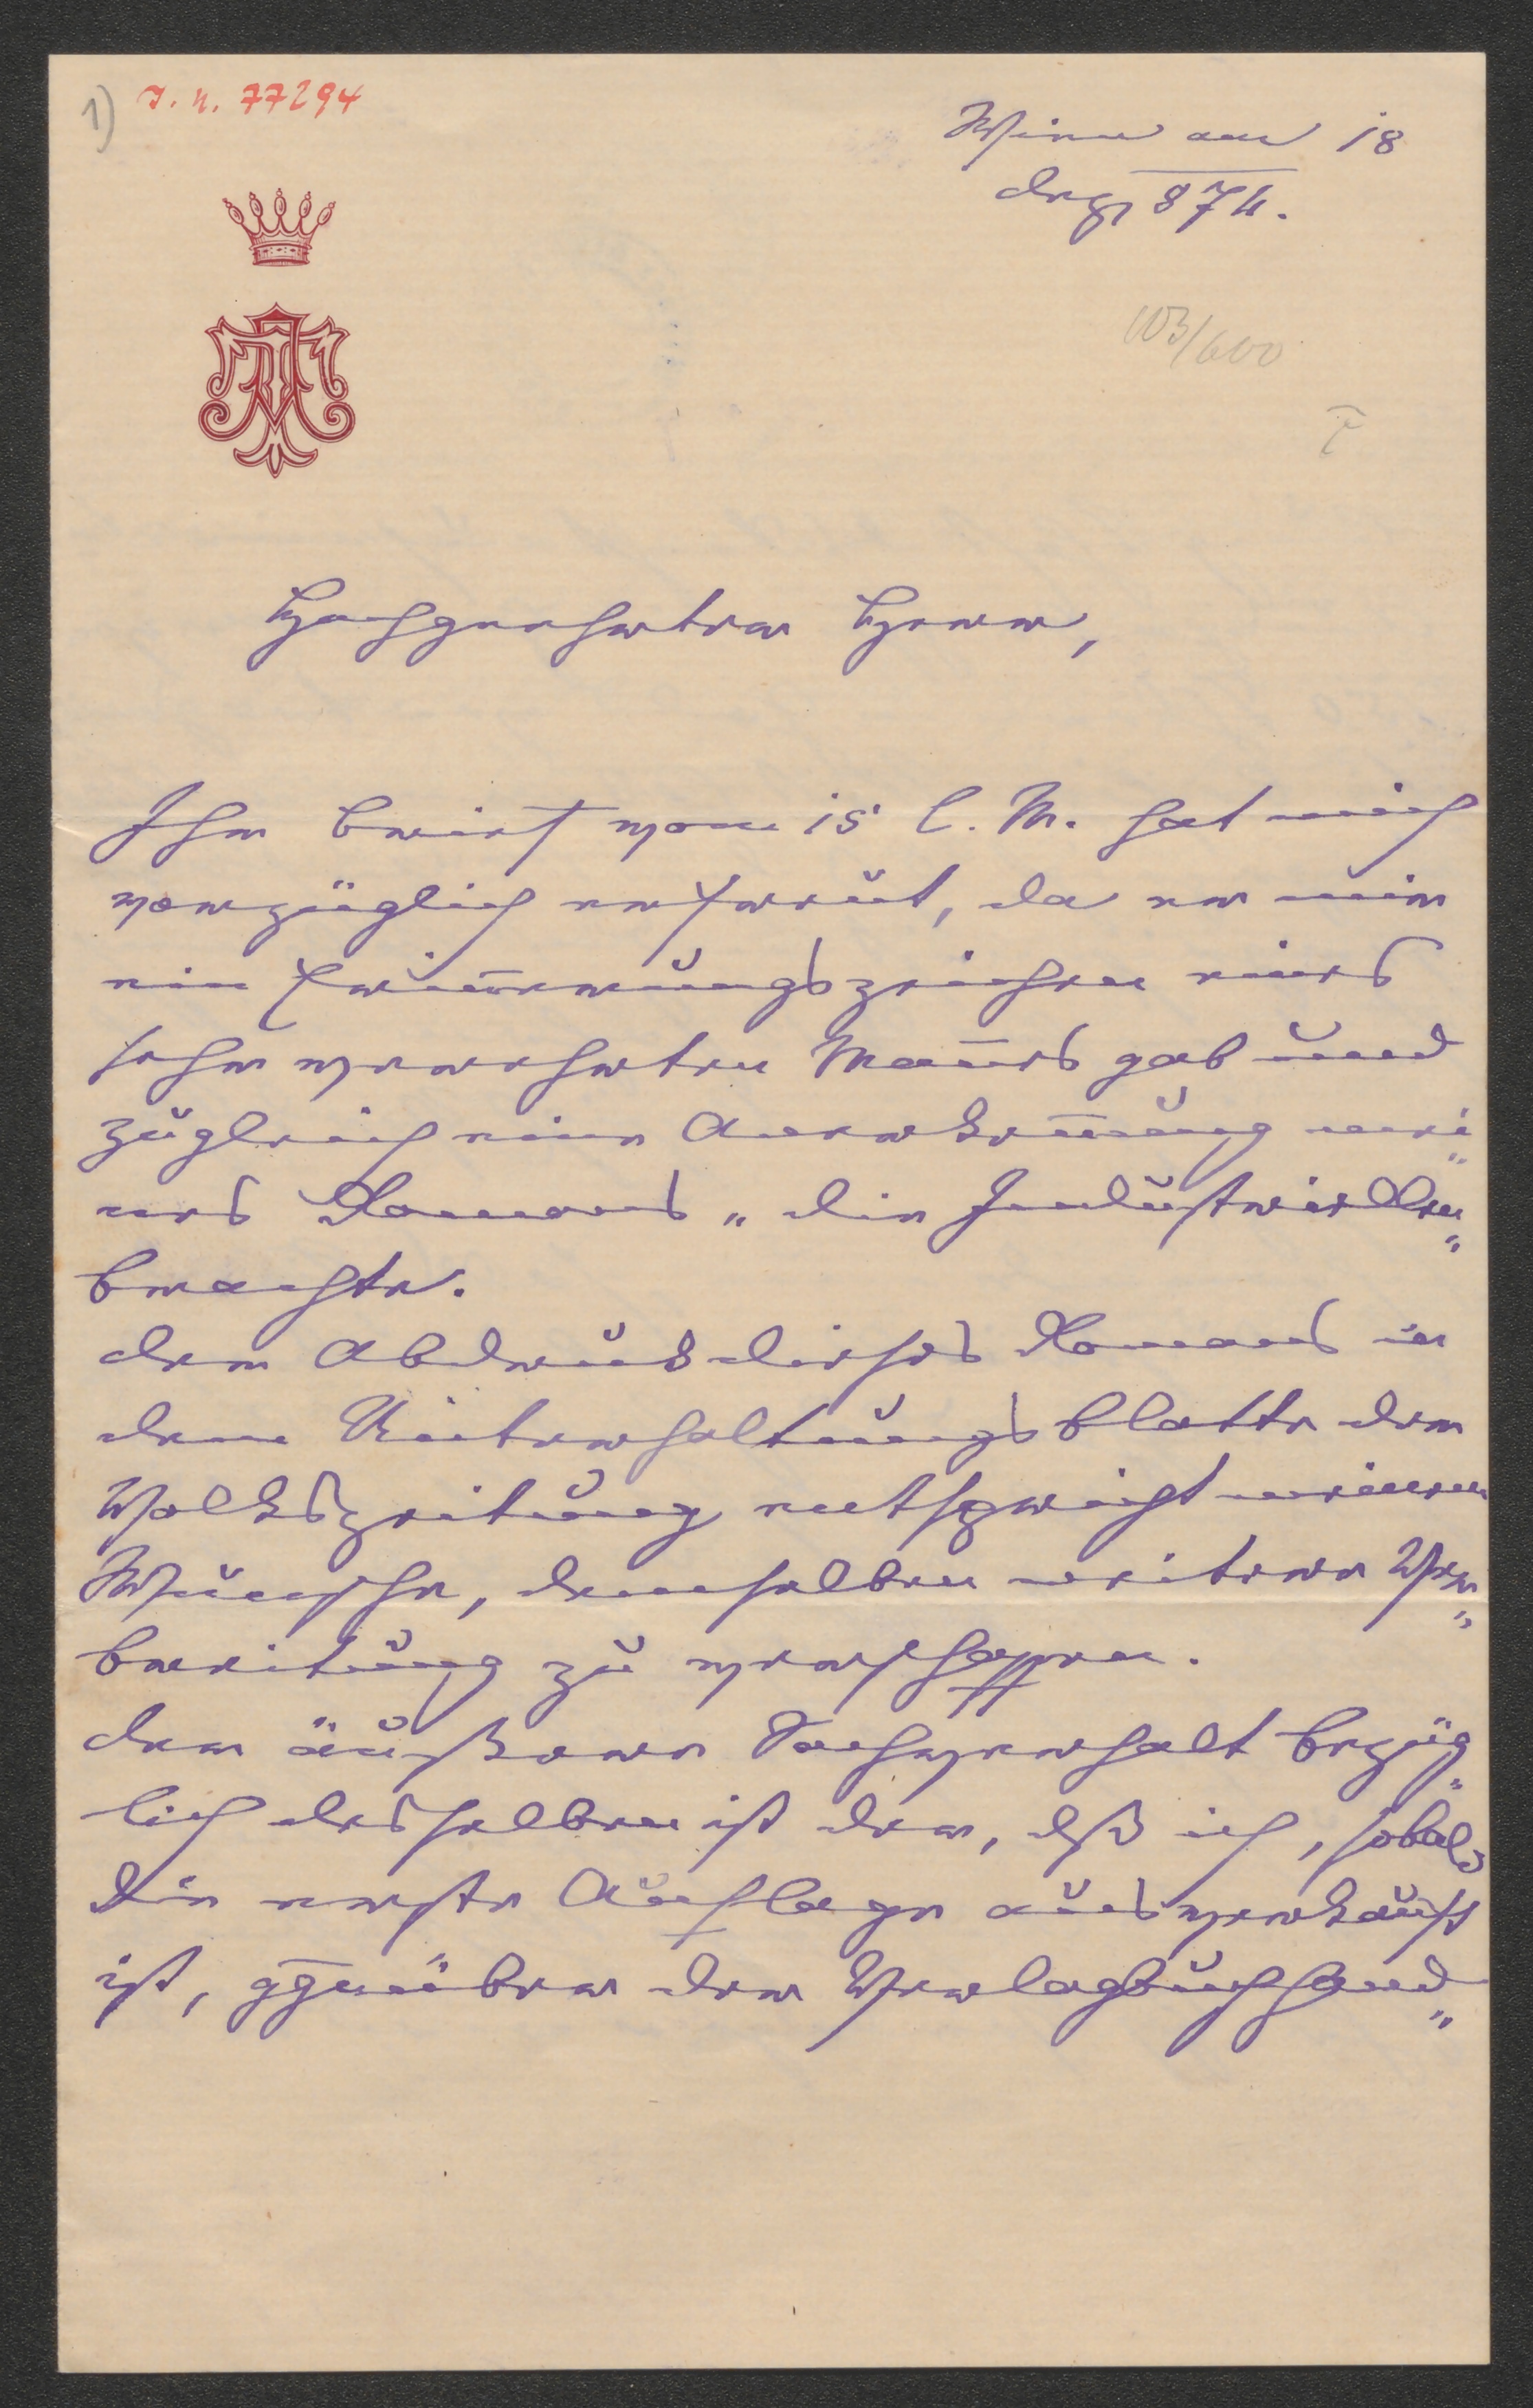 1) I. N. 77294
Wien am 18
Dez 874.
103/600
Hochgeehrter Herr,
Ihr Brief vom 15 l. M. hat mich
vorzüglich erfreut, da er mir
ein Eriñerungszeichen eines
sehr verehrten Mañes gab und
zugleich eine Anerkeñung mei„
nes Romans „die Industriellen„
brachte.
Der Abdruck dieses Romans in
dem Unterhaltungsblatte der
Volkszeitung entspricht meinem
Wunsche, demselben weitere Ver„
breitung zu verschaffen.
Der äußere Sachverhalt bezüg„
lich desselben ist der, dß ich, sobald
die erste Auflage ausverkauft
ist, gḡenüber der Verlagbuchhand„